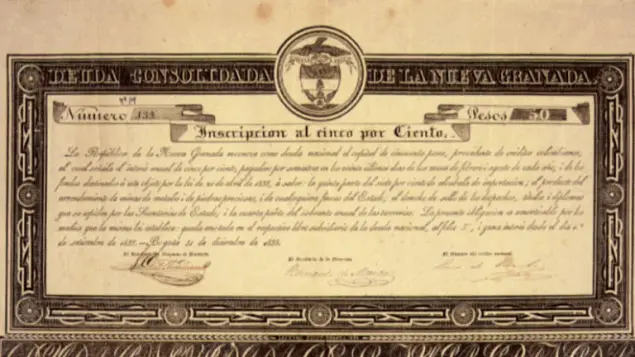 DEUDA CONSOLIDADA DE LA NUEVA GRANADA
Número 133
Pesos 50
Inscripcion al cinco por Ciento.
La República de la Nueva Granada reconoce como deuda nacional el capital de cincuenta pesos, procedente de créditos colombianos,
al cual señala el interés anual de cinco por ciento, pagadero por semestres en los últimos dias de los meses de febrero i agosto de cada año, i de los
fondos destinados a este objeto por la lei de 20 de abril de 1838, á saber: la quinta parte del siete por ciento de alcabala de importacion; el producto del
arrendamiento de minas de metales i de piedras preciosas, i de cualesquiera fincas del Estado; el derecho de sello de los despachos, títulos i diplomas
que se espiden por las Secretarías de Estado; i la cuarta parte del sobrante anual de las tesorerías. La presente obligacion es amortizable por los
medios que la misma lei establece: queda anotada en el respectivo libro subsidiario de la deuda nacional, al folio i gana interés desde el 1º
de setiembre de 1838. Bogotá 31 de diciembre de 1838.
El Presidente de la Direccion